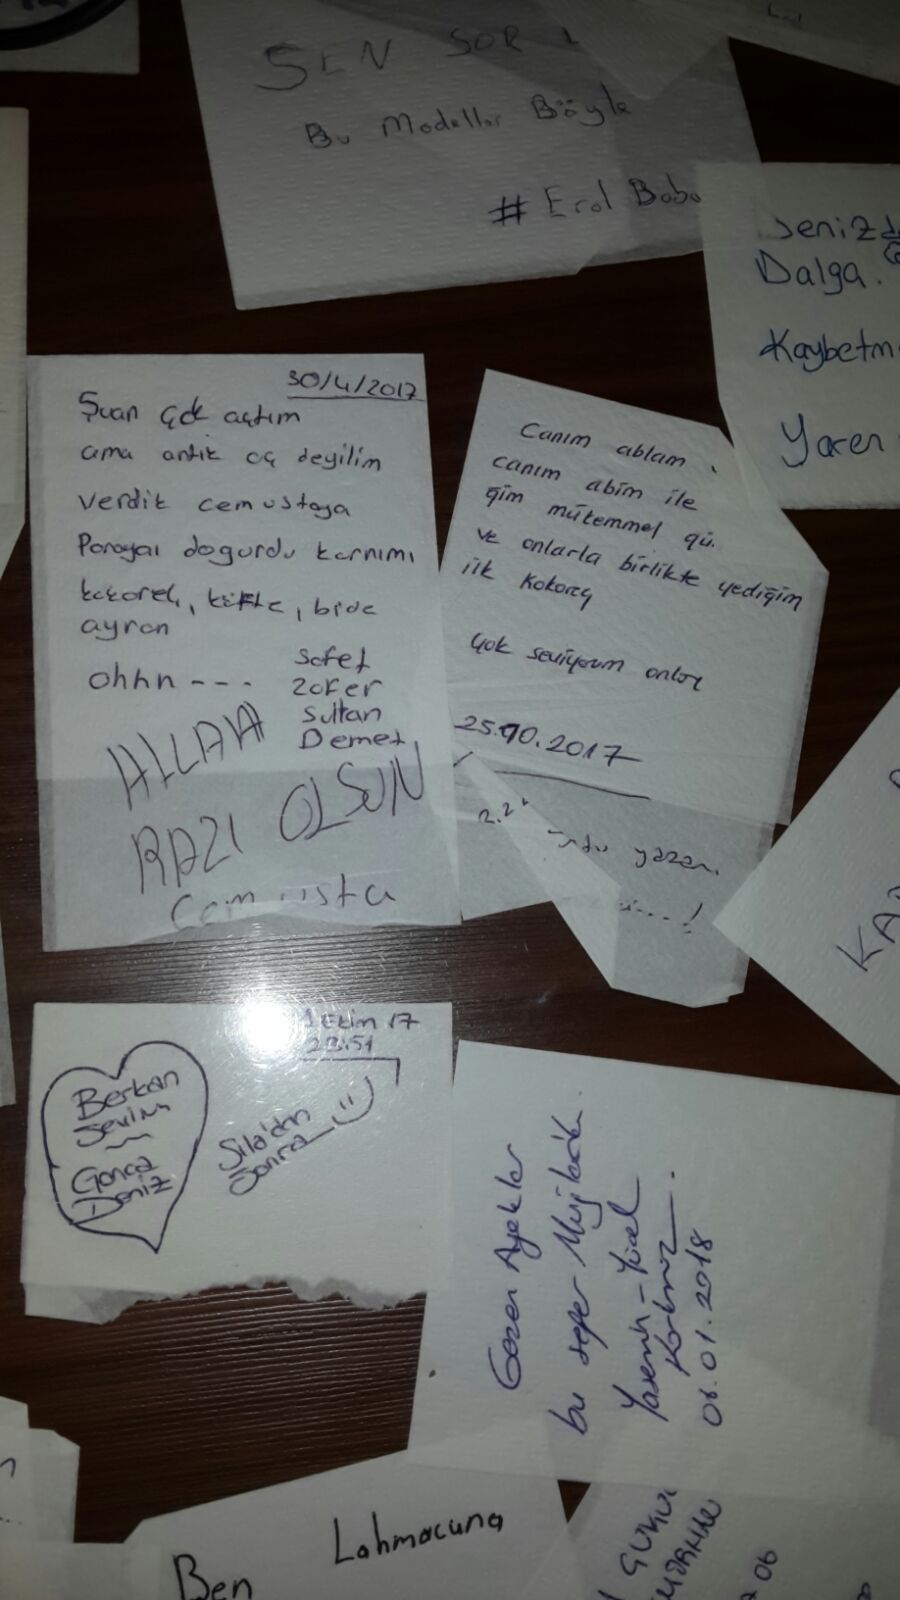 SEN SOR
Bu Modeller Böyle
# Erol Baba
Denizd
Dalga.
Kaybetm
Yaren
30/4/2017
Şuan çok açtım
ama artık aç deyilim
verdik cem ustaya
Parayaı dogurdu karnımı
kokoreç, köfte, bide
ayran
ohhn ---
Sefet
Zafer
Sultan
Demet
ALLAH
RAZI OLSUN
Cem usta
Canım ablam,
canım abim ile
ğim mükemmel gü.
ve onlarla birlikte yediğim
ilk kokoreç
çok seviyorum onları
25.10.2017
yazan.
....!
KA
1 Ekim 17
23:51
Berkan
Sevim
~
Gonca
Deniz
Sıla'dan
Sonra
Gezen Ayaklar
bu sefer
Yasemin - Yücel
Korkmaz.
06.01.2018
Lahmacuna
Ben
06